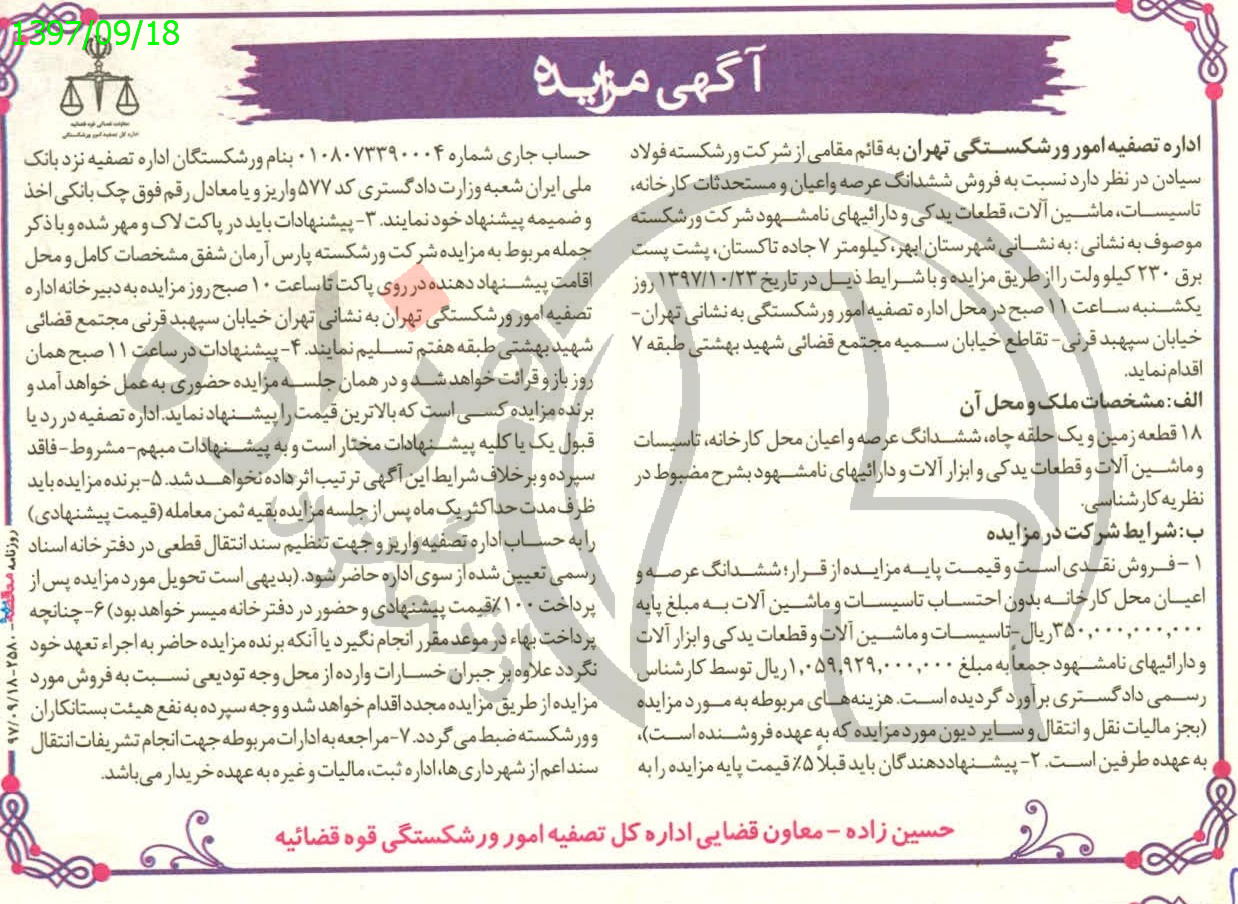 1397/09/18
آگهی مزایده
معاونت قضائی قوه قضائیه
اداره کل تصفیه امور ورشکستگی
اداره تصفیه امور ورشکستگی تهران به قائم مقامی از شرکت ورشکسته فولاد
سیادن در نظر دارد نسبت به فروش ششدانگ عرصه واعیان و مستحدثات کارخانه،
تاسیسات، ماشین آلات، قطعات یدکی و دارائیهای نامشهود شرکت ورشکسته
موصوف به نشانی: به نشانی شهرستان ابهر، کیلومتر ۷ جاده تاکستان، پشت پست
برق ۲۳۰ کیلو ولت را از طریق مزایده و با شرایط ذیل در تاریخ ۱۳۹۷/۱۰/۲۳ روز
یکشنبه ساعت ۱۱ صبح در محل اداره تصفیه امور ورشکستگی به نشانی تهران-
خیابان سپهبد قرنی- تقاطع خیابان سمیه مجتمع قضائی شهید بهشتی طبقه ۷
اقدام نماید.
الف: مشخصات ملک و محل آن
۱۸ قطعه زمین و یک حلقه چاه، ششدانگ عرصه و اعیان محل کارخانه، تاسیسات
و ماشین آلات و قطعات یدکی و ابزار آلات و دارائیهای نامشهود بشرح مضبوط در
نظریه کارشناسی.
ب: شرایط شرکت در مزایده
۱- فروش نقدی است و قیمت پایه مزایده از قرار؛ ششدانگ عرصه و
اعیان محل کارخانه بدون احتساب تاسیسات و ماشین آلات به مبلغ پایه
۳۵۰,۰۰۰,۰۰۰,۰۰۰ریال-تاسیسات و ماشین آلات و قطعات یدکی و ابزار آلات
و دارائیهای نامشهود جمعاً به مبلغ ۱,۰۵۹,۹۲۹,۰۰۰,۰۰۰ریال توسط کارشناس
رسمی دادگستری برآورد گردیده است. هزینه‌های مربوطه به مورد مزایده
(بجز مالیات نقل و انتقال و سایر دیون مورد مزایده که به عهده فروشنده است)،
به عهده طرفین است. ۲- پیشنهاددهندگان باید قبلاً ۵٪ قیمت پایه مزایده را به
حساب جاری شماره ۰۱۰۸۰۷۳۳۹۰۰۰۴ بنام ورشکستگان اداره تصفیه نزد بانک
ملی ایران شعبه وزارت دادگستری کد ۵۷۷ واریز و یا معادل رقم فوق چک بانکی اخذ
و ضمیمه پیشنهاد خود نمایند. ۳- پیشنهادات باید در پاکت لاک و مهر شده و با ذکر
جمله مربوط به مزایده شرکت ورشکسته پارس آرمان شفق مشخصات کامل و محل
اقامت پیشنهاد دهنده در روی پاکت تا ساعت ۱۰ صبح روز مزایده به دبیرخانه اداره
تصفیه امور ورشکستگی تهران به نشانی تهران خیابان سپهبد قرنی مجتمع قضائی
شهید بهشتی طبقه هفتم تسلیم نمایند. ۴- پیشنهادات در ساعت ۱۱ صبح همان
روز باز و قرائت خواهد شد و در همان جلسه مزایده حضوری به عمل خواهد آمد و
برنده مزایده کسی است که بالاترین قیمت را پیشنهاد نماید. اداره تصفیه در رد یا
قبول یک یا کلیه پیشنهادات مختار است و به پیشنهادات مبهم-مشروط-فاقد
سپرده و بر خلاف شرایط این آگهی ترتیب اثر داده نخواهد شد. ۵- برنده مزایده باید
ظرف مدت حداکثر یک ماه پس از جلسه مزایده بقیه ثمن معامله (قیمت پیشنهادی)
را به حساب اداره تصفیه واریز و جهت تنظیم سند انتقال قطعی در دفترخانه اسناد
رسمی تعیین شده از سوی اداره حاضر شود. (بدیهی است تحویل مورد مزایده پس از
پرداخت ۱۰۰٪ قیمت پیشنهادی و حضور در دفترخانه میسر خواهد بود) ۶- چنانچه
پرداخت بهاء در موعد مقرر انجام نگیرد یا آنکه برنده مزایده حاضر به اجراء تعهد خود
نگردد علاوه بر جبران خسارات وارده از محل وجه تودیعی نسبت به فروش مورد
مزایده از طریق مزایده مجدد اقدام خواهد شد و وجه سپرده به نفع هیئت بستانکاران
و ورشکسته ضبط می گردد. ۷- مراجعه به ادارات مربوطه جهت انجام تشریفات انتقال
سند اعم از شهرداری‌ها، اداره ثبت، مالیات و غیره به عهده خریدار می‌باشد.
حسین زاده - معاون قضایی اداره کل تصفیه امور ورشکستگی قوه قضائیه
روزنامه مناقصه - ۲۵۸۰ - ۹۷/۰۹/۱۸
هزاره